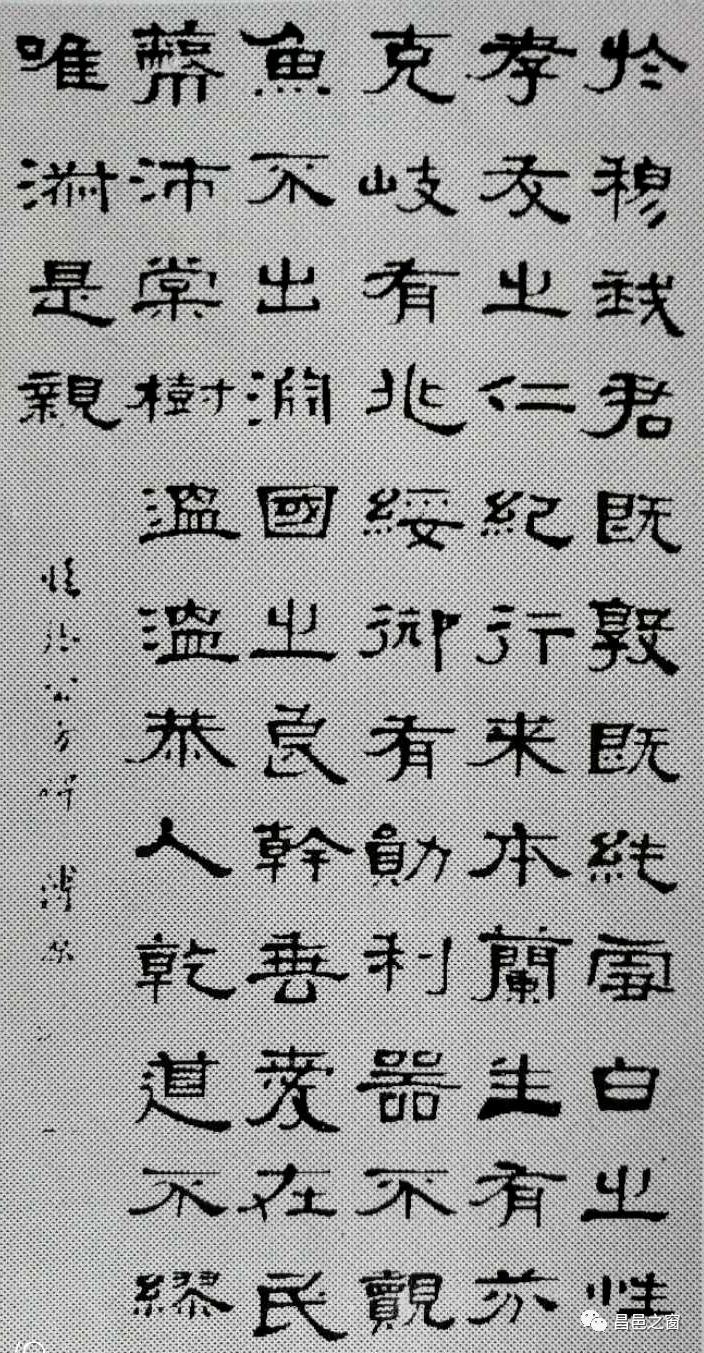 於穆我君既敦既純雪白之性
孝友之仁紀行來本蘭生有芬
克岐有兆綏御有勛利器不覿
魚不出淵國之良幹垂愛在民
蔽沛棠樹溫溫恭人乾道不繆
唯淑是親
臨張公方碑
昌邑之窗